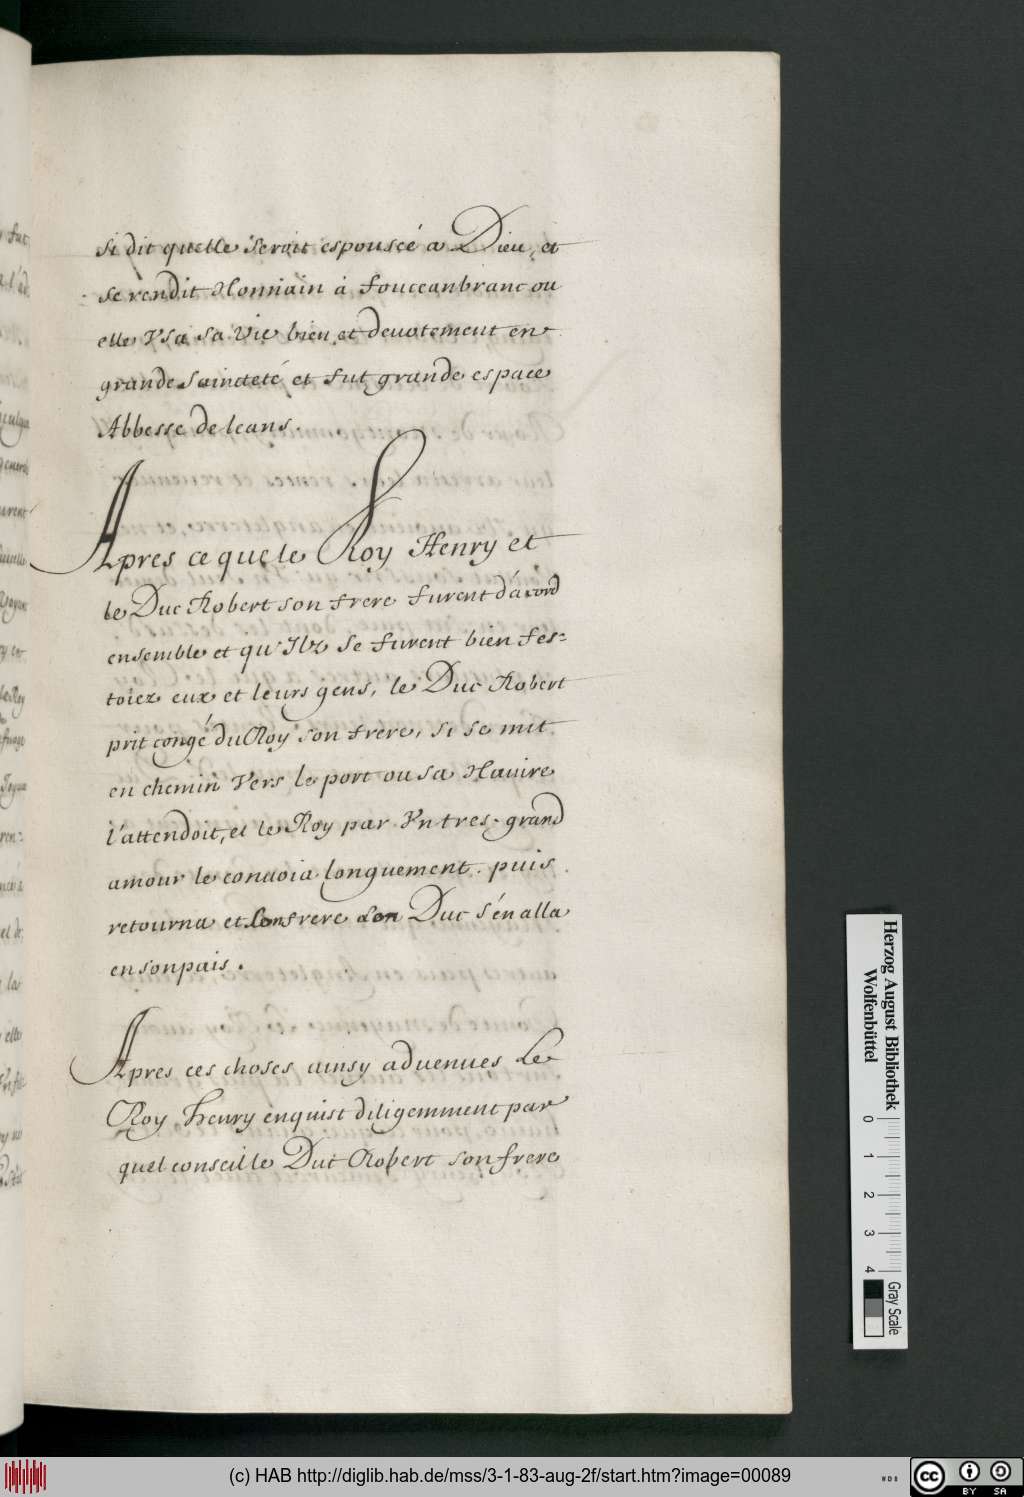 si dit quelle seroit espouseé a Dieu, et
se rendit Nonnain à fouceanbranc ou
elle Vsa sa vie bien et devotement en
grande saincteté et fut grande espace
Abbesse de leans.
Apres ce que le Roy Henry et
le Duc Robert son frere furent d'acord
ensemble et qu'Ilz se furent bien fes=
toiez eux et leurs gens, le Duc Robert
prit congé du Roy son frere, si se mit
en chemin Vers le port ou sa Nauire
l'attendoit, et le Roy par Vn tres-grand
amour le conuoia longuement. puis
retourna et son frere Duc s'en alla
en son pais.
Apres ces choses ainsy aduenues Le
Roy henry enquist diligemment par
quel conseil le Duc Robert son frere
Herzog August Bibliothek
Wolfenbüttel
0 1 2 3 4
Gray Scale
(c) HAB http://diglib.hab.de/mss/3-1-83-aug-2f/start.htm?image=00089
cc BY SA